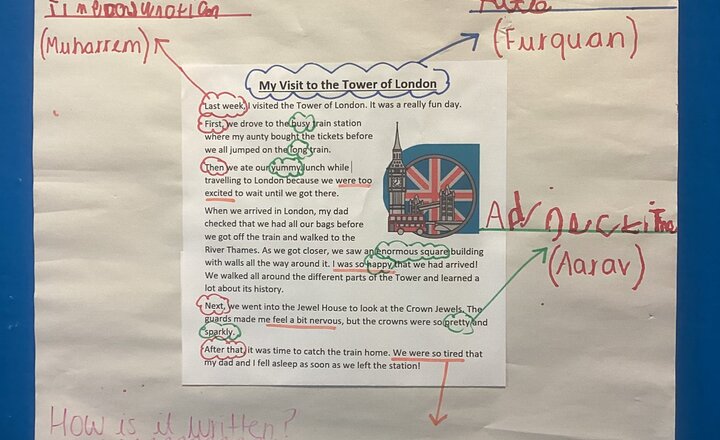 (Muharrem)
(Furquan)
My Visit to the Tower of London
Last week, I visited the Tower of London. It was a really fun day.
First, we drove to the busy train station
where my aunty bought the tickets before
we all jumped on the long train.
Then we ate our yummy lunch while
travelling to London because we were too
excited to wait until we got there.
When we arrived in London, my dad
checked that we had all our bags before
we got off the train and walked to the
River Thames. As we got closer, we saw an enormous square building
with walls all the way around it. I was so happy that we had arrived!
We walked all around the different parts of the Tower and learned a
lot about its history.
Next, we went into the Jewel House to look at the Crown Jewels. The
guards made me feel a bit nervous, but the crowns were so pretty and
sparkly.
After that, it was time to catch the train home. We were so tired that
my dad and I fell asleep as soon as we left the station!
(Aarav)
How is it written?